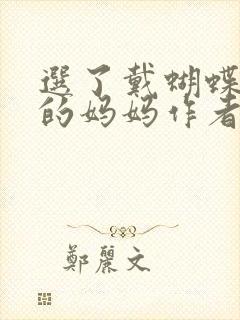 選了戴蝴蝶
的妈妈作者
鄭麗文